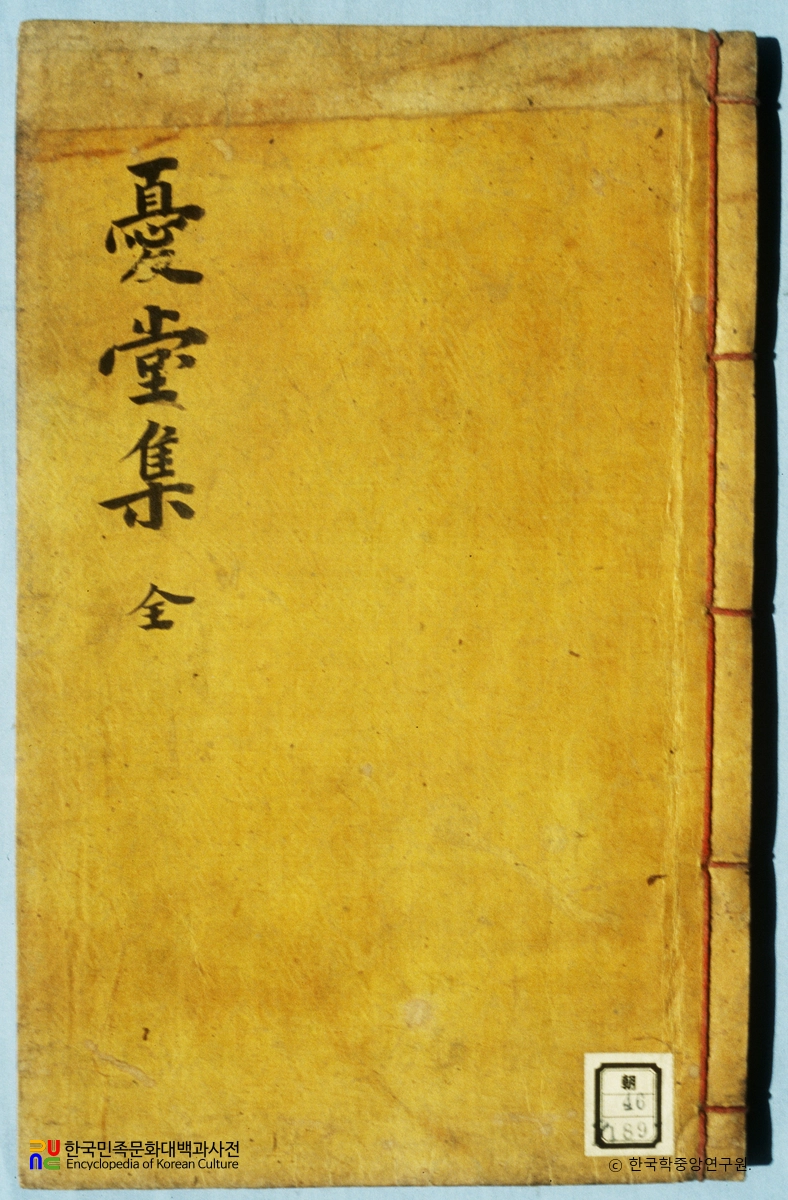 憂堂集 全
朝
46
189
한국민족문화대백과사전
Encyclopedia of Korean Culture
© 한국학중앙연구원.